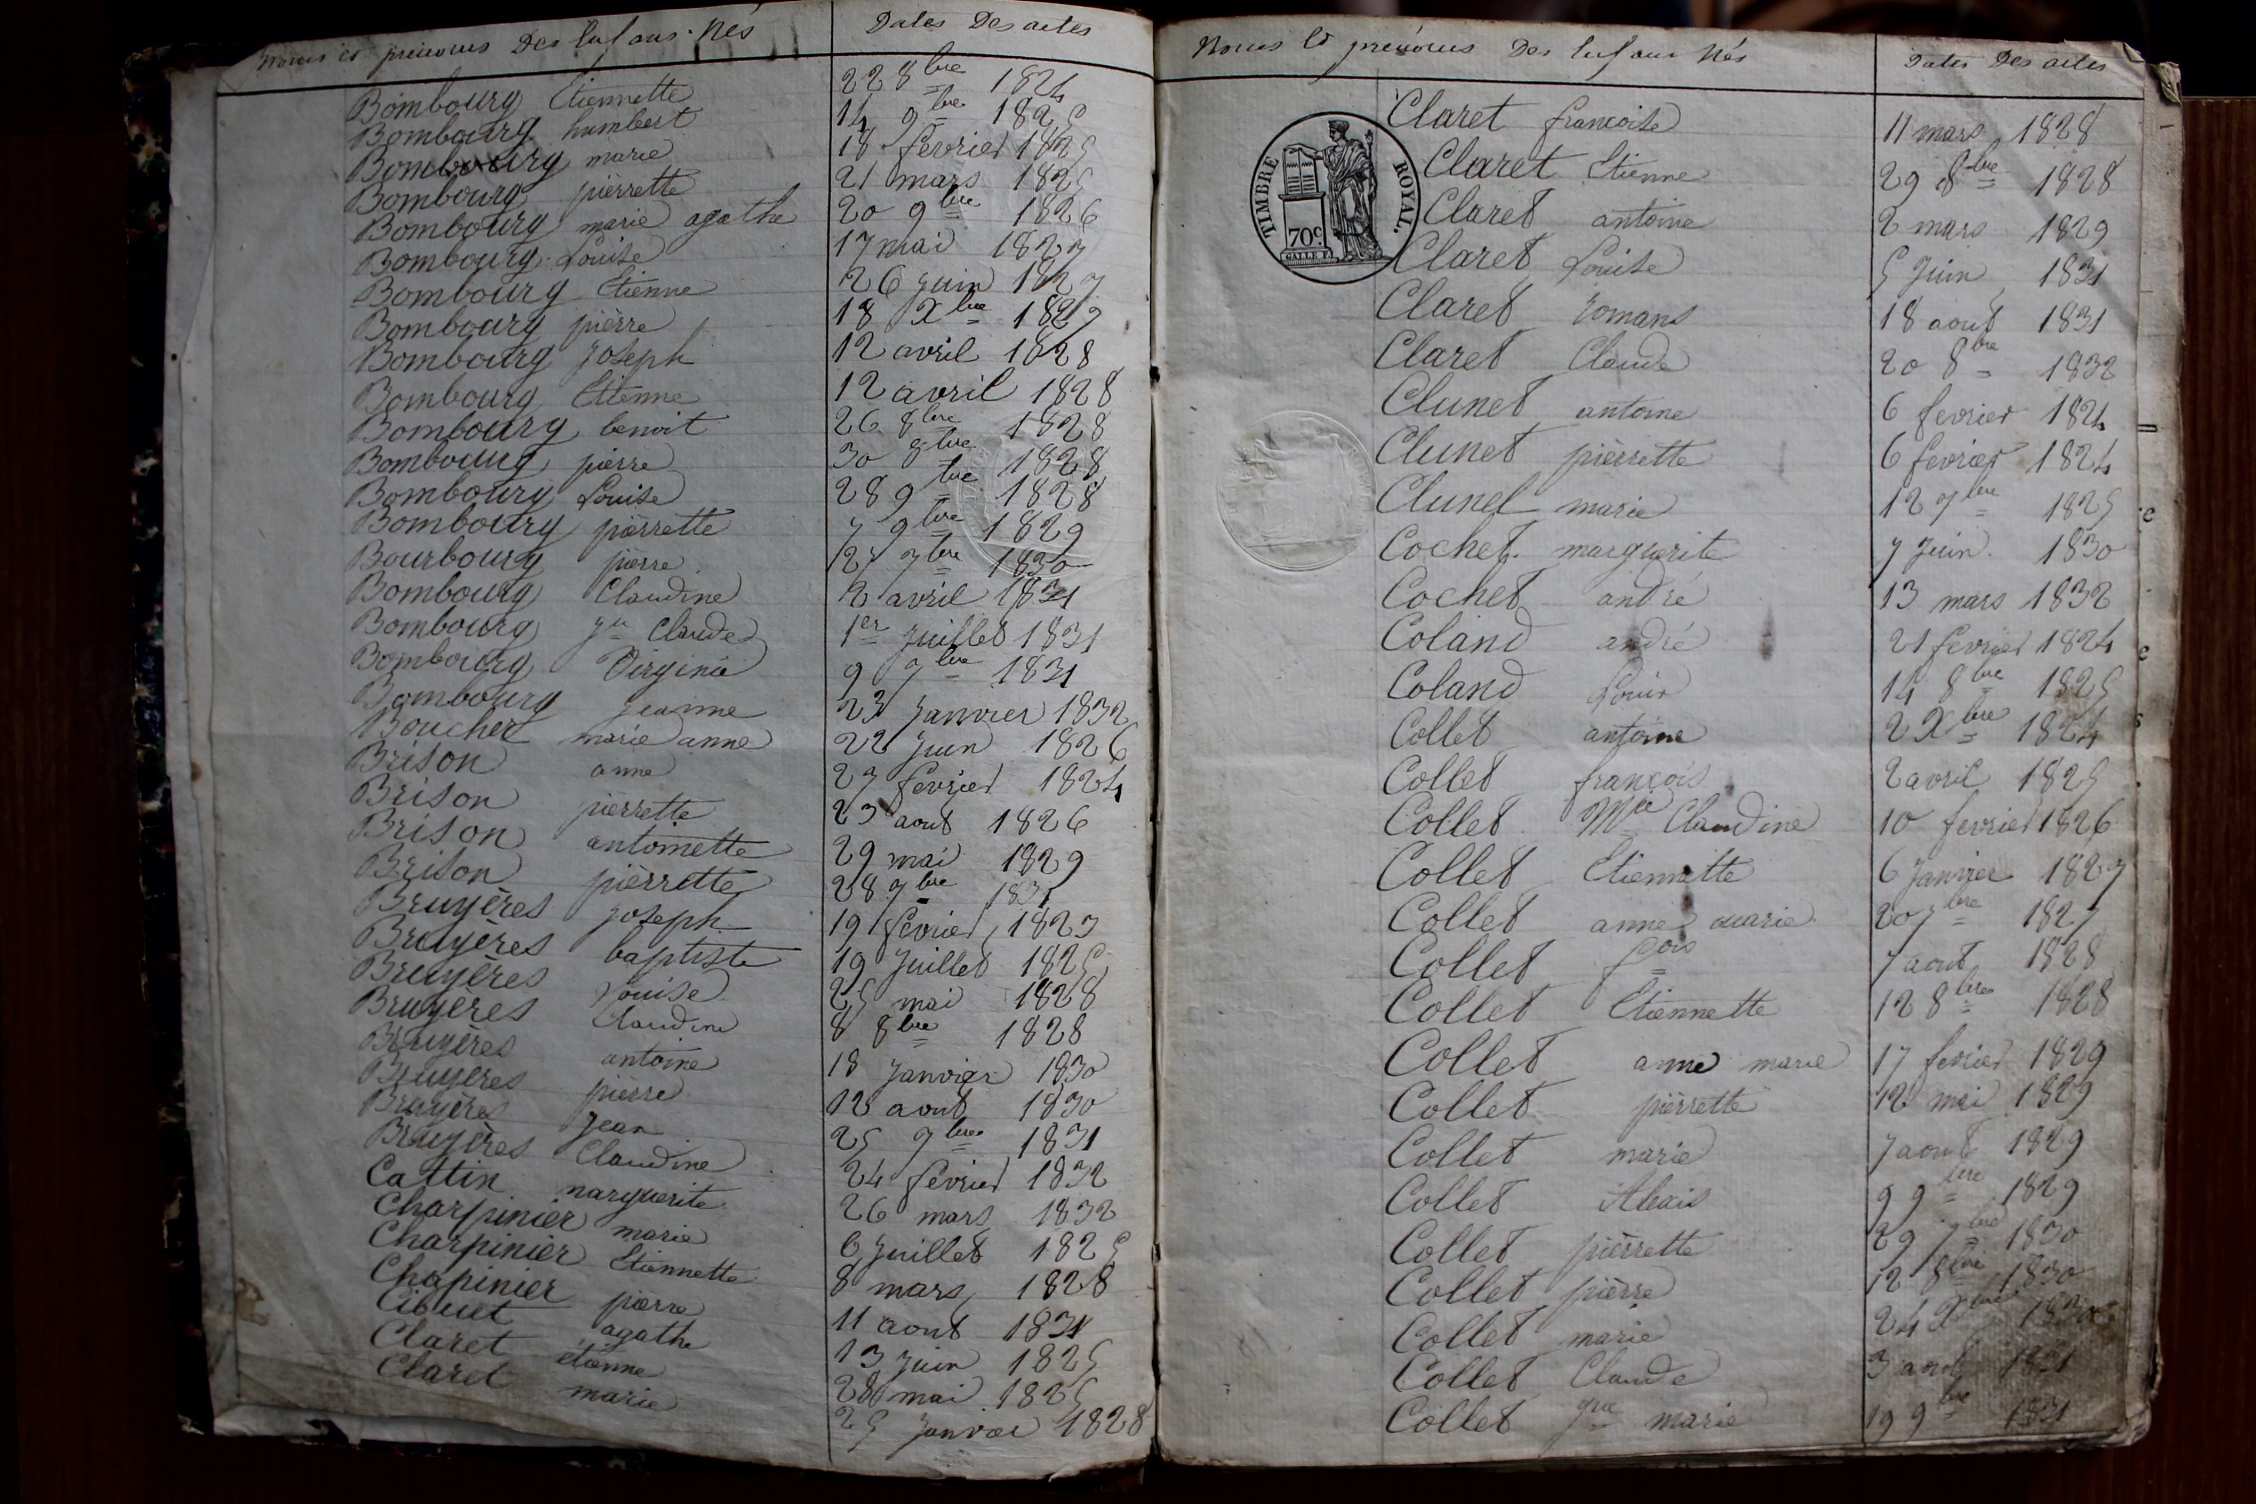 Noms et prénoms Des Enfans Nés Dates Des actes
Bombourg Etiennette 22 8bre 1824
Bombourg humbert 14 9bre 1825
Bombourg marie 18 fevrier 1825
Bombourg pierrette 21 mars 1825
Bombourg marie agathe 20 9bre 1826
Bombourg Louise 17 mai 1827
Bombourg Etienne 26 Juin 1827
Bombourg pierre 18 Xbre 1827
Bombourg Joseph 12 avril 1828
Bombourg Etienne 12 avril 1828
Bombourg benoit 26 8bre 1828
Bombourg pierre 30 8bre 1828
Bombourg Louise 28 9bre 1828
Bombourg pierrette 7 9bre 1829
Bourbourg pierre 7bre 1830
Bombourg Claudine 2 avril 1831
Bombourg Jn Claude 1er Juillet 1831
Bombourg Virginie 9 7bre 1831
Bombourg Jeanne 23 Janvier 1832
Boucher marie anne 22 Juin 1826
Brison anne 27 fevrier 1824
Brison pierrette 23 aout 1826
Brison antoinette 29 mai 1829
Brison pierrette 28 7bre 1831
Bruyères Joseph 19 fevrier 1823
Bruyères baptiste 19 Juillet 1825
Bruyères Louise 25 mai 1828
Bruyères Claudine 8 8bre 1828
Bruyères antoine 18 Janvier 1830
Bruyères pierre 12 aout 1830
Bruyères Jean 25 7bre 1831
Bruyères Claudine 24 fevrier 1832
Cattin marguerite 26 mars 1832
Charpinier marie 6 Juillet 1825
Charpinier Etiennette 8 mars 1828
Chapinier pierre 11 aout 1831
Cibuet agathe 13 Juin 1825
Claret étienne 28 mai 1825
Claret marie 25 Janvier 1828
Noms Et prénoms Des Enfans Nés Dates Des actes
TIMBRE ROYAL.
70c.
Claret francoise 11 mars 1828
Claret Etienne 29 8bre 1828
Claret antoine 2 mars 1829
Claret Louise 5 Juin 1831
Claret romans 18 aout 1831
Claret Claude 20 8bre 1832
Clunet antoine 6 fevrier 1824
Clunet pierrette 6 fevrier 1824
Clunet marie 12 7bre 1825
Cochet marguerite 7 Juin 1830
Cochet andré 13 mars 1832
Coland andré 21 fevrier 1824
Coland Louis 14 8bre 1825
Collet antoine 2 Xbre 1824
Collet françois 2 avril 1825
Collet Mie Claudine 10 fevrier 1826
Collet Etiennette 6 Janvier 1827
Collet anne marie 20 7bre 1827
Collet fcois 7 aout 1828
Collet Etiennette 12 8bre 1828
Collet anne marie 17 fevrier 1829
Collet pierrette 12 mai 1829
Collet marie 7 aout 1829
Collet Alexis 9 9bre 1829
Collet pierrette 29 7bre 1830
Collet pierre 12 8bre 1830
Collet marie 24 Xbre 1830
Collet Claude 3 aout 1831
Collet Jne marie 19 9bre 1831